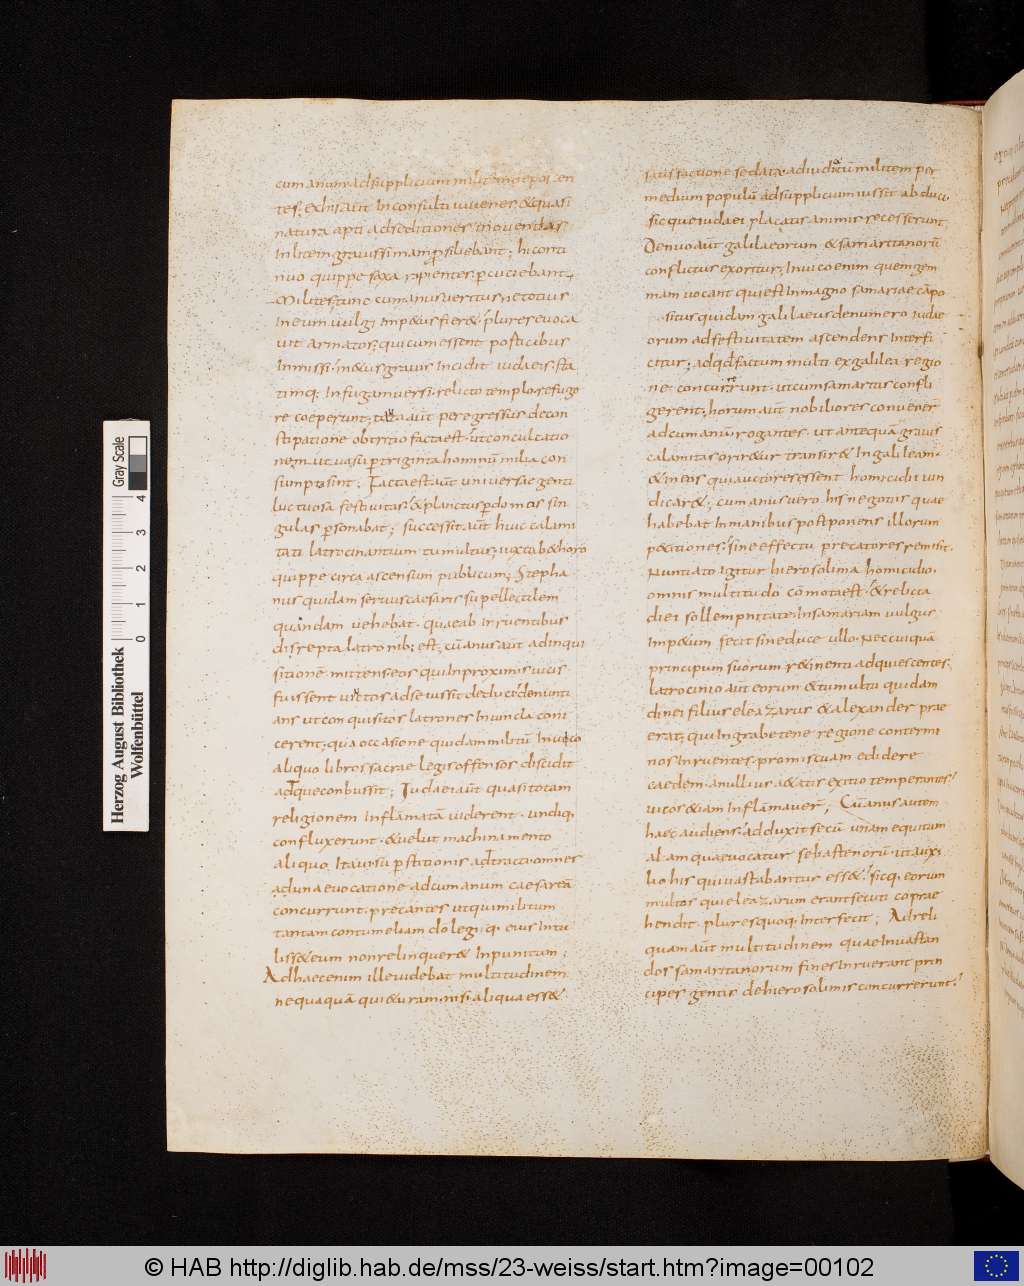 cumanum ad supplicium militem deposcen
tes. Ex his aut inconsulti iuvenes. & quasi
natura apti ad seditiones moventdas
In litem gravissimam psiliebant; hi conti
nuo quippe saxa rapientes. pcutiebant,
Milites; tunc cumanus veritus ne totius
In eum vulgi Imp&us fier&. plures evoca
vit armatos; qui cum essent porticibus
Inmissi. m&us gravis Incidit iudaeis. sta
timq; In fugam versi. relicto templo refugo
re coeperunt; tanta aut per egressus decon
stipatione obtritio facta est. ut conculcatio
nem. ut vasu p triginta hominū milia con
sumpta sint; Facta est aūt universae genti
luctuosa festivitas. & planctus p domos sin
gulas psonabat; successit aūt huic calami
tati latrocinantium tumultus; iuxta b&horo
quippe circa ascensum publicum; Stepha
nus quidam servus caesaris supellectilem
quandam vehebat. quae ab irruentibus
disrepta latronib; est; cūanus aut ad inqui
sitionē mittens eos qui In proximis vicis
fuissent vinctos ad se iussit deduci. denunti
ans ut conquisitos latrones In vincla coni
cerent; qua occasione quidam militū In vico
aliquo libros sacrae legis offensos discidit
adque conbussit; Iudaei aūt quasi totam
religionem Inflamatā viderent. undiq;
confluxerunt. & velut machinamento
aliquo. Ita ut su pstitionis adtracti omnes
ad una evocatione ad cumanum caesareā
concurrunt. precantes ut qui militum
tantam contumeliam do legi. qi eius Intu
liss& eum non relinquer& Inpunitum;
Ad haec enim ille videbat multitudinem
nequaquā qui&uram. nisi aliqua ess&
satisfactione sedata. adiudicatū militem per
medium populū ad supplicium iussit abduci.
sicque iudaei placatis animis recesserunt
Denuo aūt galilaeorum & samaritanorū
conflictus exoritur; In vico enim quem gem
mam vocant qui est In magno samariae cāpo
situs quidam galilaeus de numero iudae
orum ad festivitatem ascendens Interfi
citur; ad qd factum multi ex galilea regio
ne concurrunt. ut cum samaritis confli
gerent; horum aūt nobiliores convener
ad cumanū. rogantes. ut antequā gravis
calamitas orir&ur transir& In galileam.
& In eos qui auctores essent homicidii vin
dicar&; cumanus vero his negotiis quae
habebat In manibus postponens illorum
p&itiones. sine effectu precatores remisit.
Nuntiato igitur hierosolima homicidio.
omnis multitudo cōmota est. & relicta
diei sollempnitate. In samariam vulgus
Imp&um fecit sine duce ullo. Nec cuiquā
principum suorum r&inenti adquiescentes;
latrocinio aūt eorum & tumultu quidam
dinei filius eleazarus & alexander prae
erat; qui In grabetene regione contermi
nos Inruentes. promiscuam edidere
caedem. a nullius a&atis exitio temperantes.
vicos &iam Inflāmaver; Cūanus autem
haec audiens. adduxit secū unam equitum
alam quae vocatur sebastenorū. ut aux;
lio his qui vastabantur ess&. sicq; eorum
multos qui eleazarum erant secuti coprae
hendit. pluresquoq; Interfecit; Ad reli
quam aūt multitudinem quae In vastan
dos samaritanorum fines Inruerant prin
cipes gentis de hierosolimis concurrerunt.
Herzog August Bibliothek
Wolfenbüttel
0 1 2 3 4
Gray Scale
© HAB http://diglib.hab.de/mss/23-weiss/start.htm?image=00102